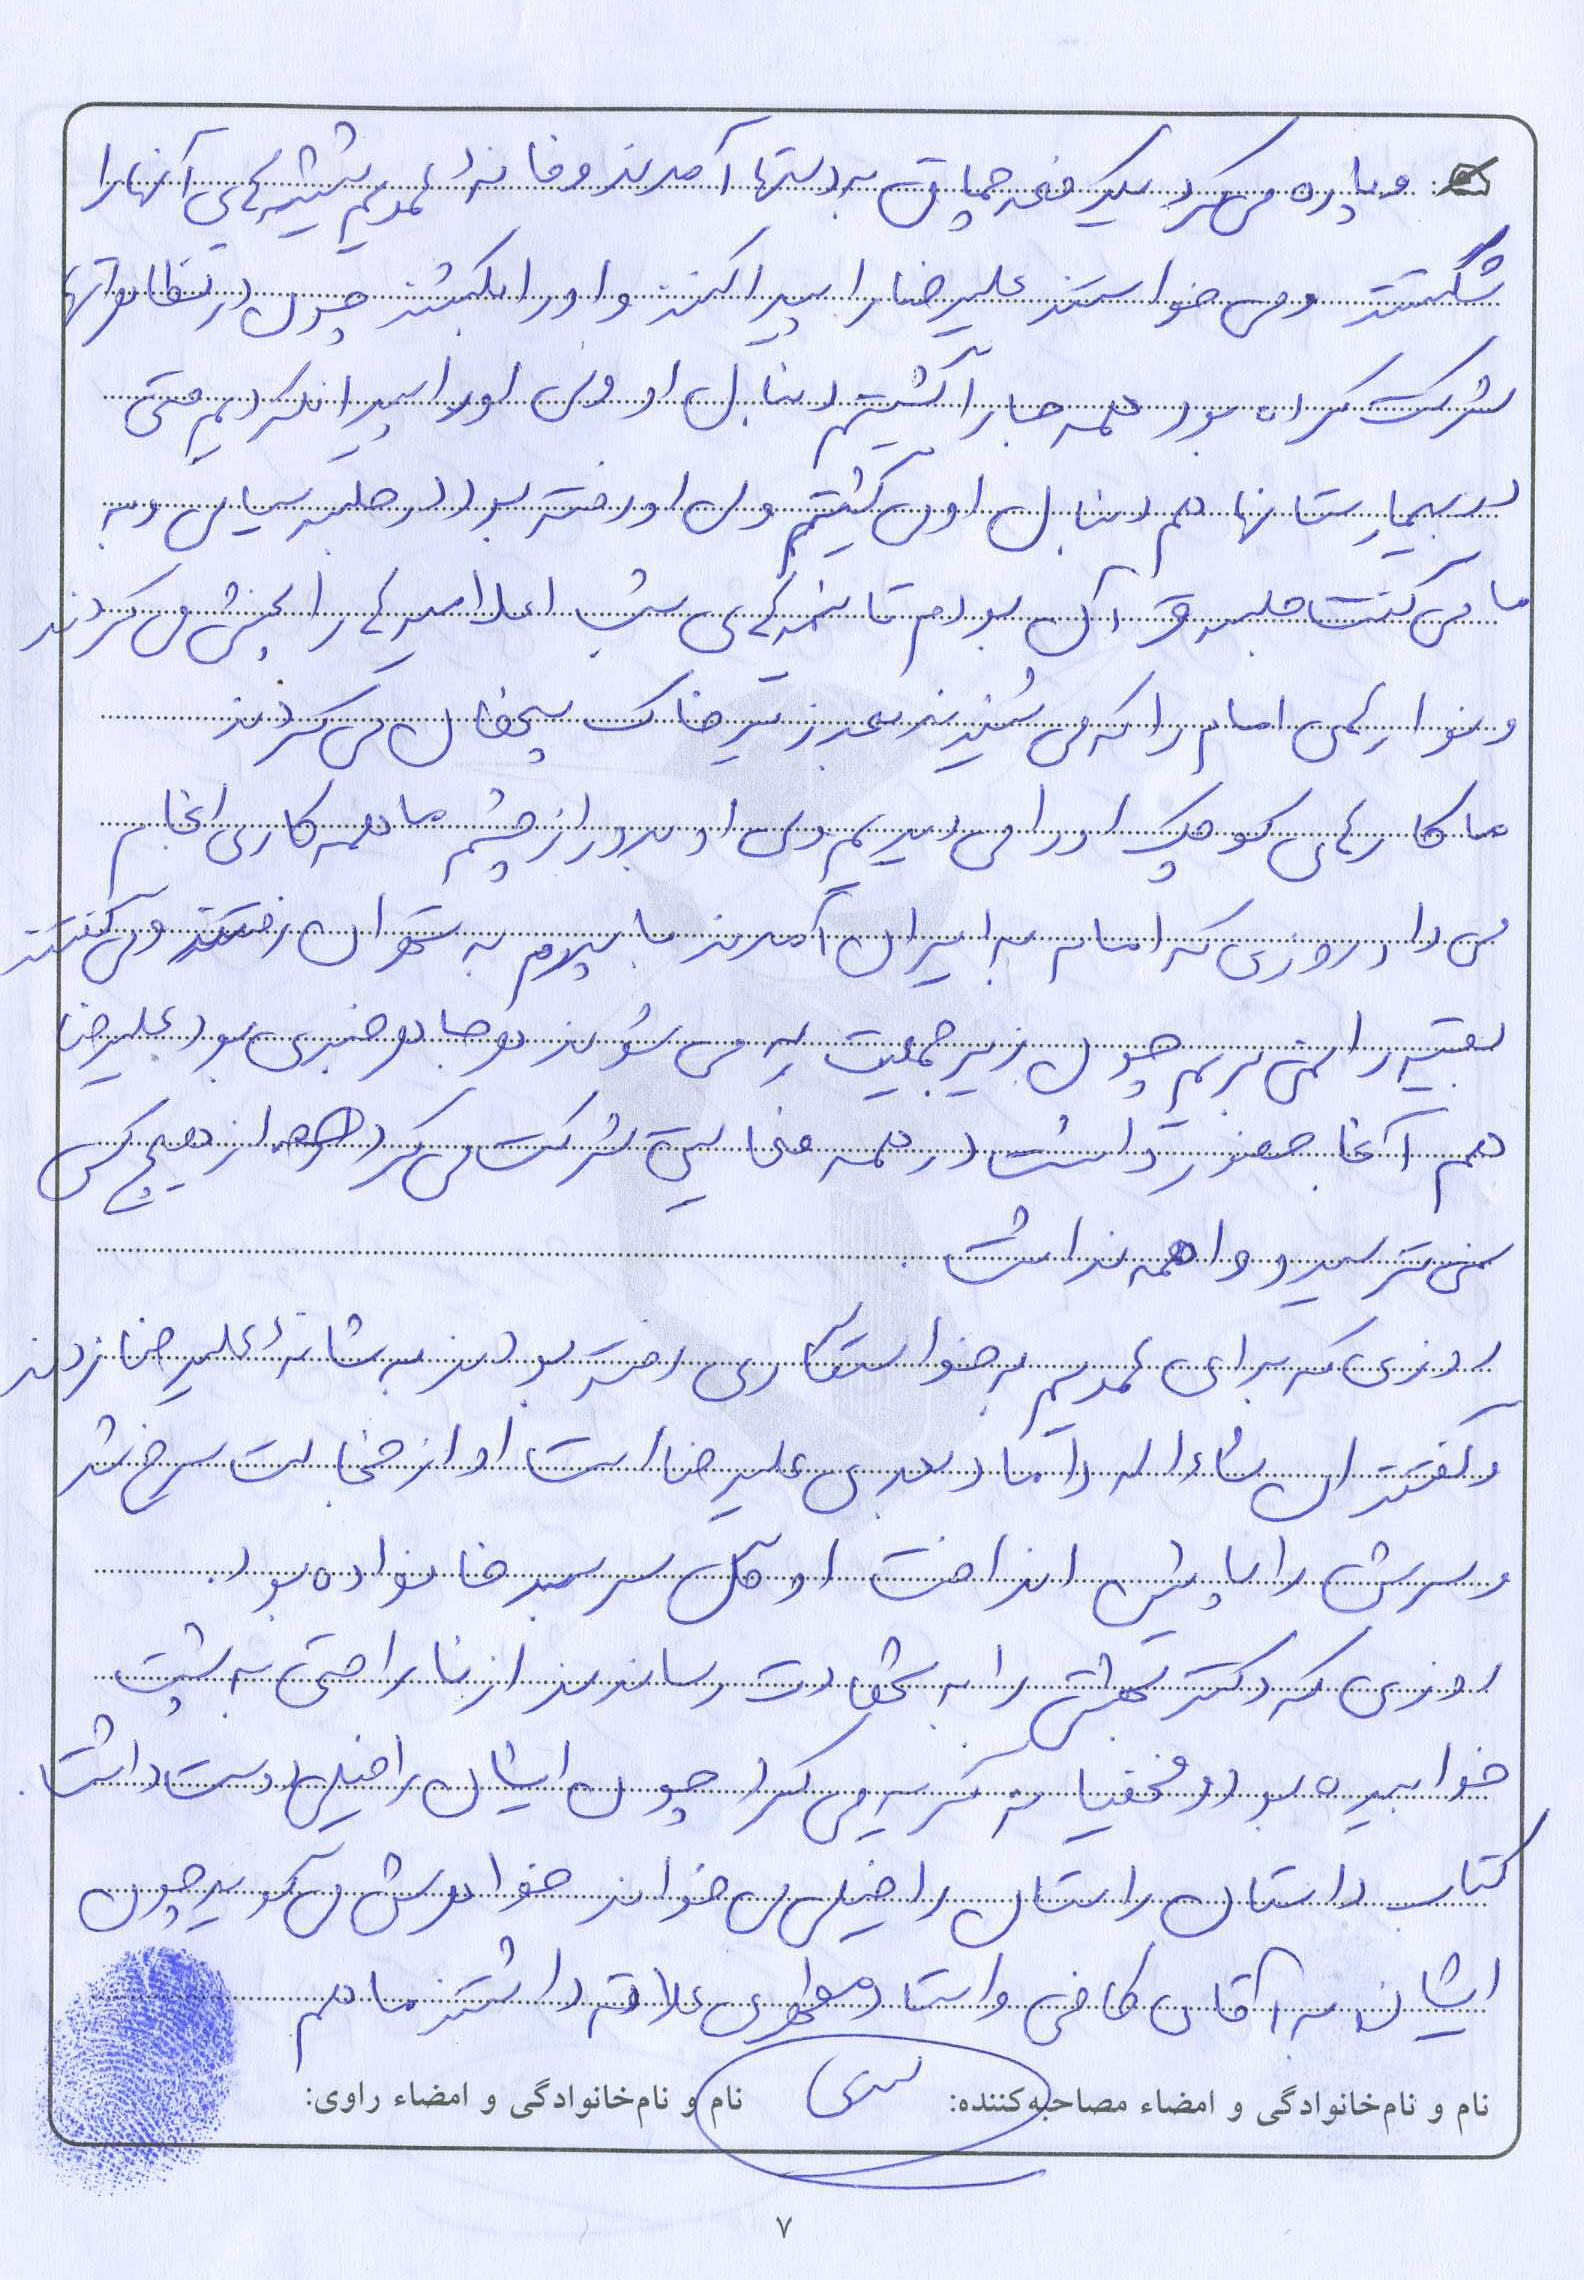 و پاره می‌کرد یک دفعه چماق به دستها آمدند و خانهٔ عمدیم شیشه‌های آنها را
شکستند و می خواستند علیرضا را پیدا کنند و او را بکشند چون در تظاهراتها
شرکت کرده بود همه جا را گشتیم دنبال او ولی او را پیدا نکردیم حتی
در بیمارستانها هم دنبال او می گشتیم ولی او رفته بود در جلسه سیاسی و به
ما می گفت جلسه قرآن بودم تا نیمه‌های شب اعلامیه‌ها را پخش می کردند
و نوارهای امام را که می شنیدند بعد زیر خاک پنهان می کردند
ما کارهای کوچک او را می دیدیم ولی او بدور از چشم ما همه کاری انجام
می داد روزی که امام به ایران آمدند با پدرم به تهران رفتند و می گفتند
بقیه را نمی بریم چون زیر جمعیت له می شوند هر جا هر خبری بود علیرضا
هم آنجا حضور داشت در همه فعالیت شرکت می کرد از هیچ کس
نمی ترسید و واهمه نداشت.
روزی که برای عمدیم به خواستگاری رفته بودند به شانهٔ علیرضا زدند
و گفتند ان شاء الله داماد بعدی علیرضا است او از خجالت سرخ شد
و سرش را پایین انداخت او گل سرسبد خانواده بود.
روزی که دکتر بهشتی را به شهادت رساندند از ناراحتی به پشت
خوابیده بود و مخفیانه گریه می کرد چون ایشان را خیلی دوست داشت.
کتاب داستان راستان را خیلی می خواند خواهرش می گوید چون
ایشان به آقای کافی و استاد مطهری علاقه داشتند ما هم
نام و نام‌خانوادگی و امضاء مصاحبه‌کننده: نام و نام‌خانوادگی و امضاء راوی:
۷